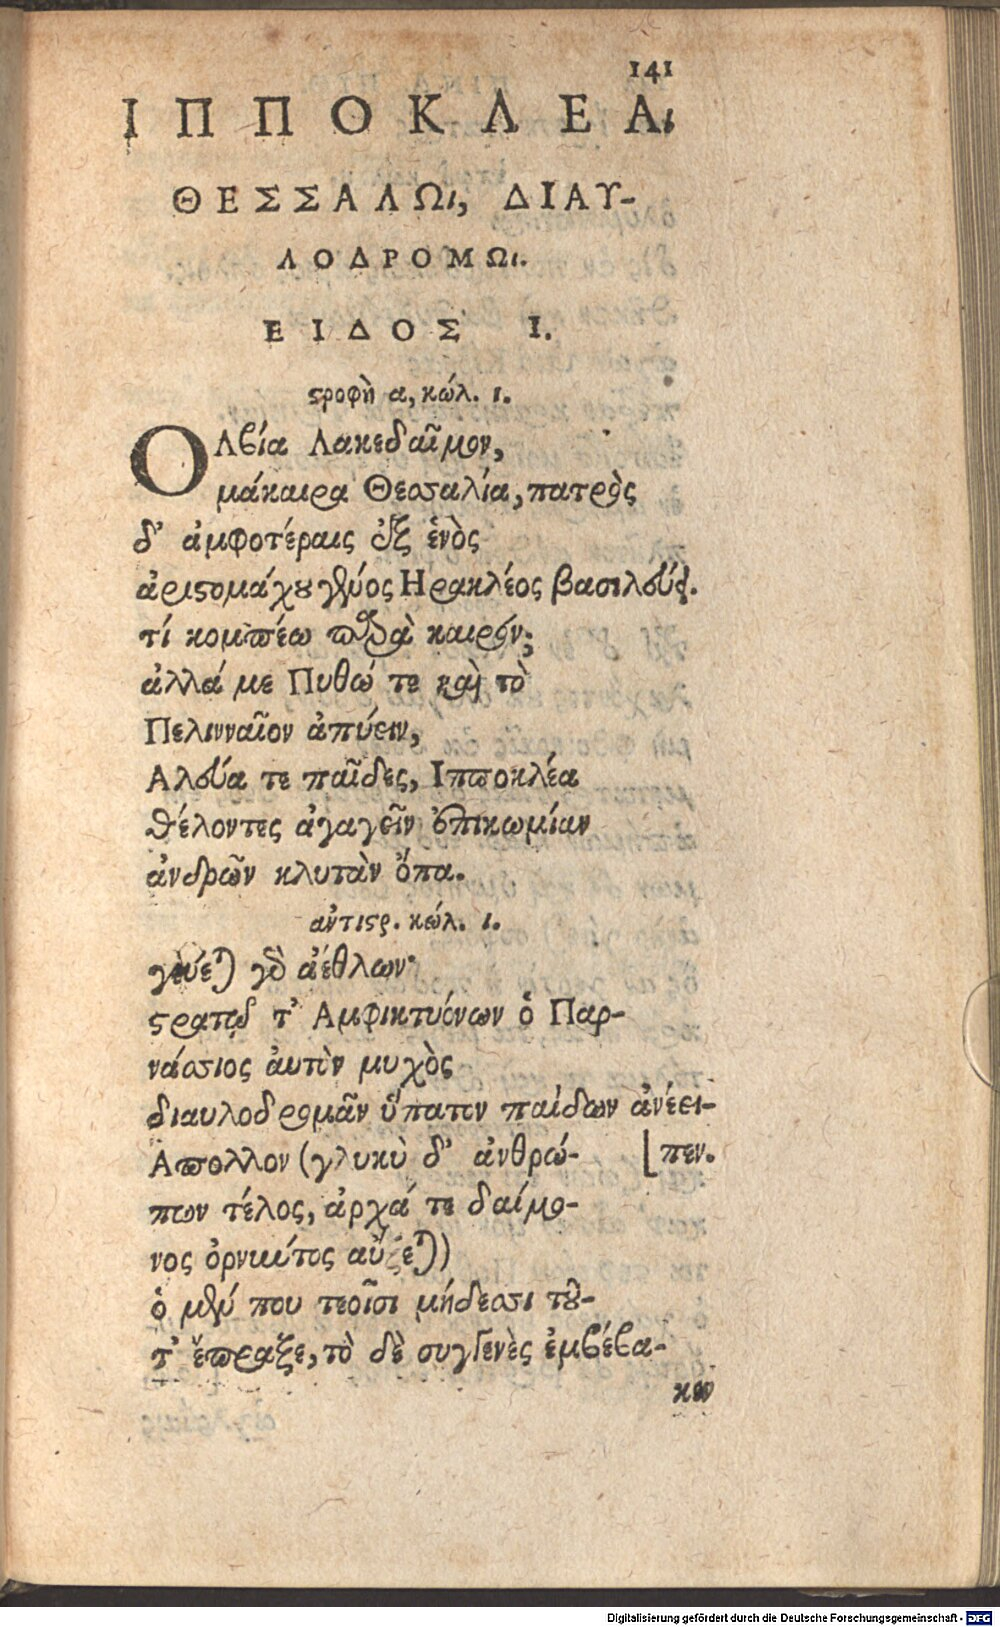 141
ΙΠΠΟΚΛΕΑι
ΘΕΣΣΑΛΩι, ΔΙΑΥ-
ΛΟΔΡΟΜΩι.
ΕΙΔΟΣ Ι.
ϛροφὴ α, κώλ. ι.
ΟΛβία Λακεδαῖμον,
μάκαιρα Θεσσαλία, πατρὸς
δ' ἀμφοτέραις ἐξ ἑνὸς
ἀριϛομάχου γένος Ηρακλέος βασιλεύει.
τί κομπέω παρὰ καιρόν;
ἀλλά με Πυθώ τε καὶ τὸ
Πελινναῖον ἀπύειν,
Αλεύα τε παῖδες, Ιπποκλέα
θέλοντες ἀγαγεῖν ἐπικωμίαν
ἀνδρῶν κλυτὰν ὄπα.
ἀντιϛρ. κώλ. ι.
γεύεται γὰρ ἀέθλων·
ϛρατῷ τ' Αμφικτυόνων ὁ Παρ-
νάσσιος αὐτὸν μυχὸς
διαυλοδρομᾶν ὕπατον παίδων ἀνέει-
Απολλον (γλυκὺ δ' ἀνθρώ- [πεν.
πων τέλος, ἀρχά τε δαίμο-
νος ὀρνύντος αὔξεται)
ὁ μέν που τεοῖσι μήδεσσι τοῦ-
τ' ἔπραξε, τὸ δὲ συγγενὲς ἐμβέβα-
κεν
Digitalisierung gefördert durch die Deutsche Forschungsgemeinschaft - DFG